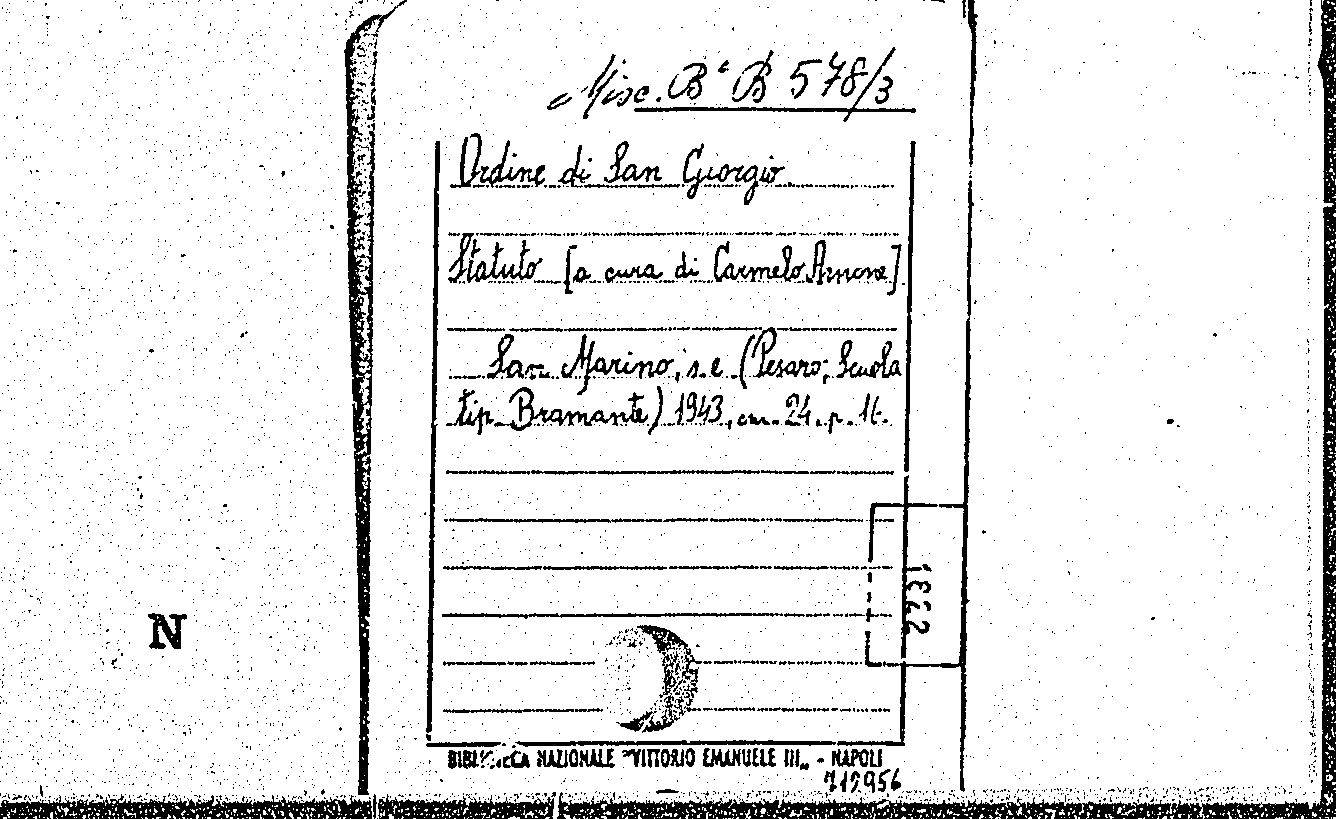 Misc. Bª B 578/3
Ordine di San Giorgio
Statuto [a cura di Carmelo Arnone]
San Marino, s.e (Pesaro, Scuola
tip. Bramante) 1943, cm. 24. p. 16.
1322
N
BIBLIOTECA NAZIONALE "VITTORIO EMANUELE III„ - NAPOLI